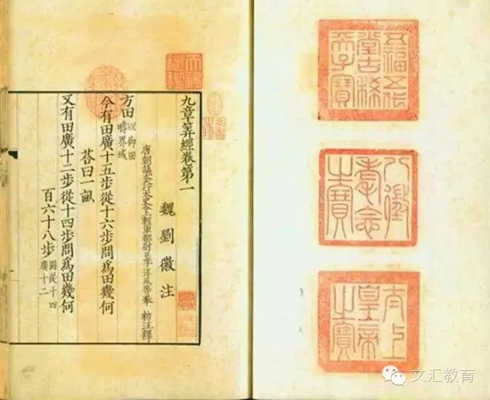 五福五代
堂古稀
天子寶
八徵
耄念
之寶
太上
皇帝
之寶
九章筭經卷第一
魏劉徽注
唐朝議大夫行太史令上輕車都尉臣李淳風等奉 敕注釋
方田 以御田疇界域
今有田廣十五步從十六步問爲田幾何
荅曰一畝
又有田廣十二步從十四步問爲田幾何
百六十八步 圖從十四廣十二
文汇教育